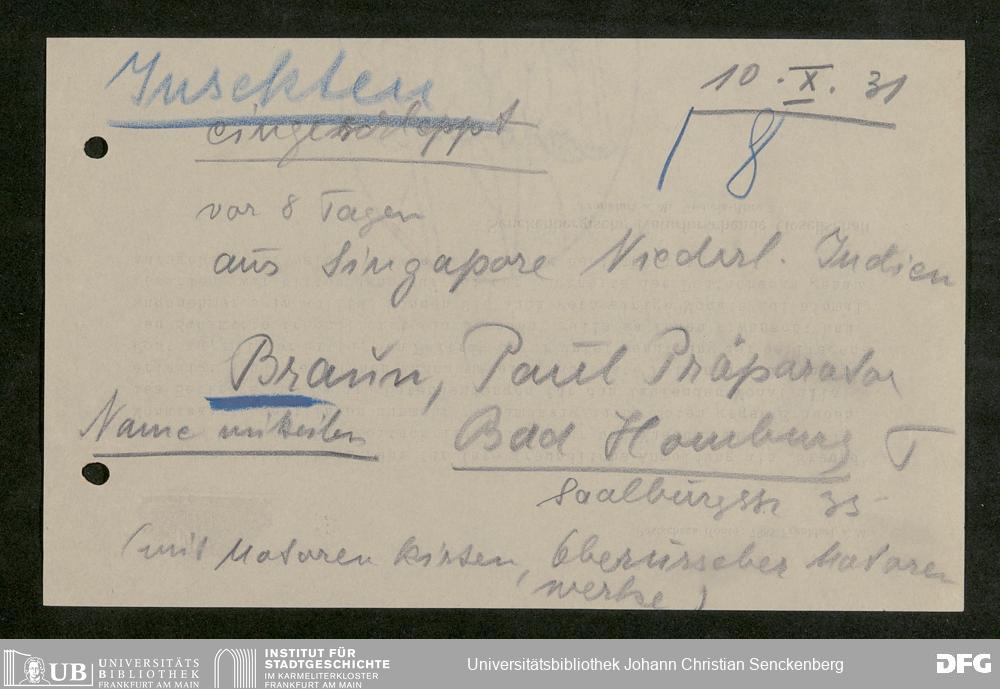 Insekten
10.X.31
eingeschleppt
8
vor 8 Tagen
aus Singapore Niederl. Indien
Braun, Paul Präparator
Name mitteilen
Bad Homburg
Saalburgstr 35
(mit Motoren kisten, Oberurseler Motoren
werke)
UB UNIVERSITÄTS
BIBLIOTHEK
FRANKFURT AM MAIN
INSTITUT FÜR
STADTGESCHICHTE
IM KARMELITERKLOSTER
FRANKFURT AM MAIN
Universitätsbibliothek Johann Christian Senckenberg
DFG